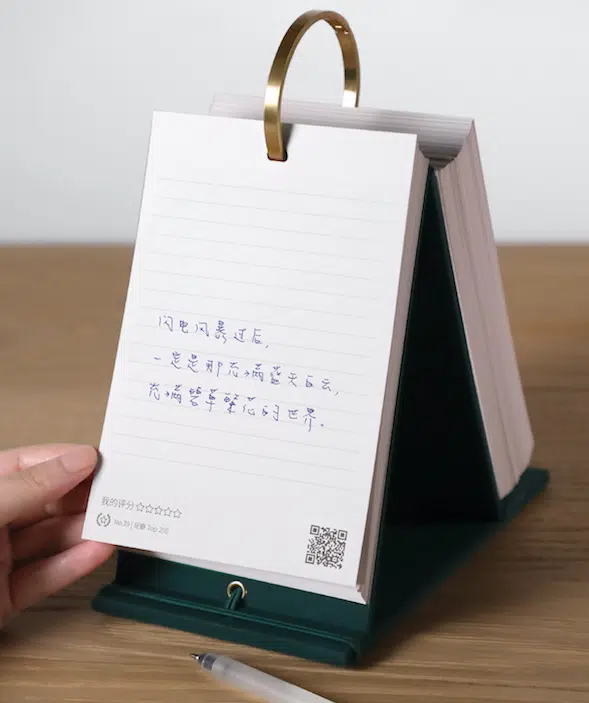 闪电风暴过后,
一定是那充满蓝天白云,
充满碧草繁花的世界。
我的评分☆☆☆☆☆
豆瓣 Top 250